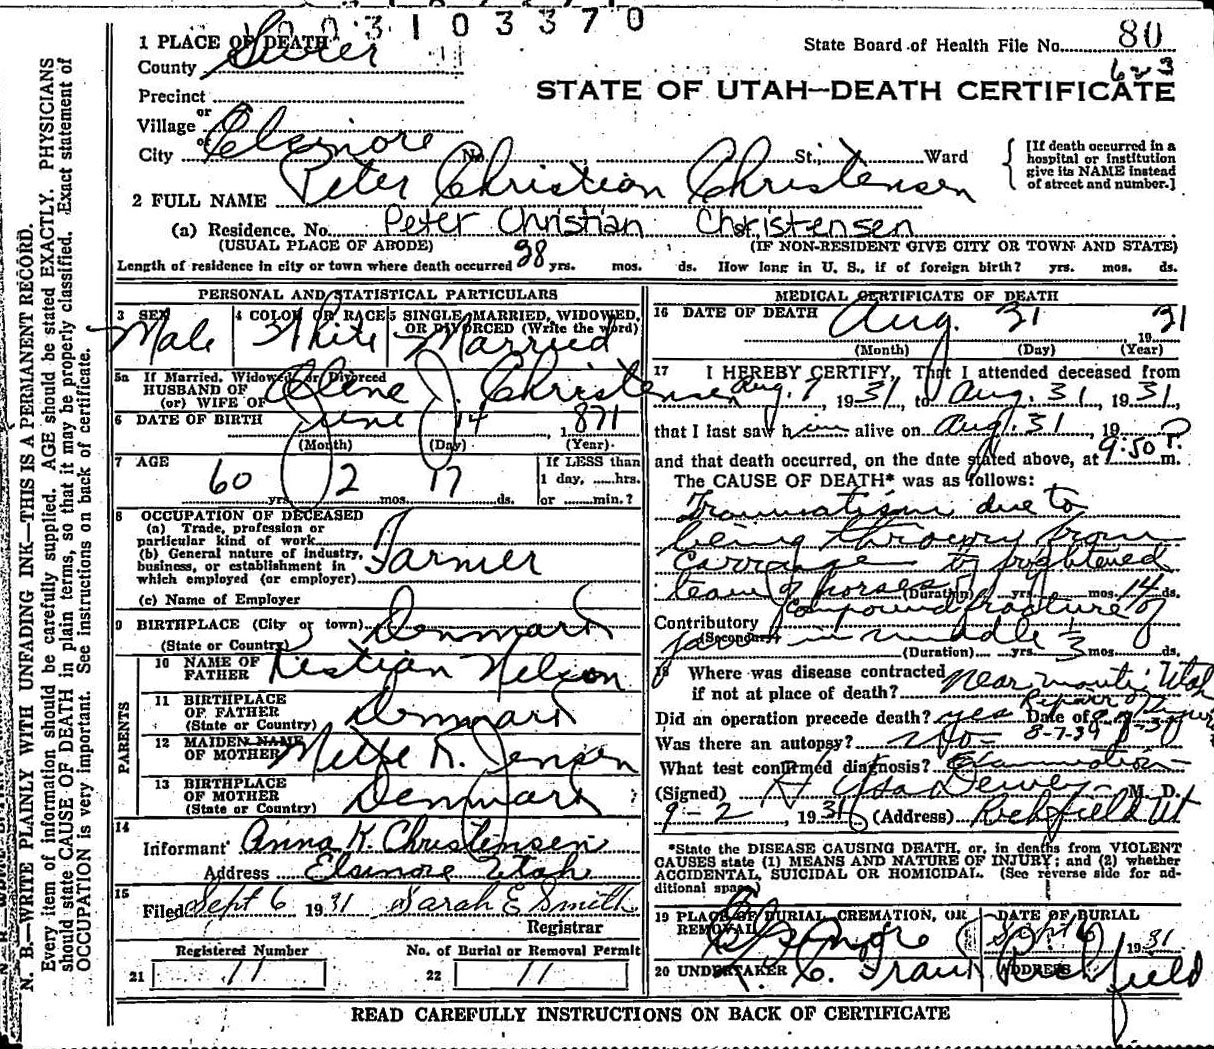 1003103370
1 PLACE OF DEATH
State Board of Health File No. 80
County Sevier
623
STATE OF UTAH—DEATH CERTIFICATE
Precinct
or
Village
of
City Elsinore No. St.; Ward
[If death occurred in a hospital or institution give its NAME instead of street and number.]
2 FULL NAME Peter Christian Christensen
(a) Residence. No. Peter Christian Christensen
(USUAL PLACE OF ABODE) (IF NON-RESIDENT GIVE CITY OR TOWN AND STATE)
Length of residence in city or town where death occurred 38 yrs. mos. ds. How long in U. S., if of foreign birth? yrs. mos. ds.
PERSONAL AND STATISTICAL PARTICULARS
3 SEX Male
4 COLOR OR RACE White
5 SINGLE, MARRIED, WIDOWED, OR DIVORCED (Write the word) Married
5a If Married, Widowed, or Divorced
HUSBAND OF
(or) WIFE OF Olene J. Christensen
6 DATE OF BIRTH June 14, 1871
(Month) (Day) (Year)
7 AGE
60 yrs. 2 mos. 17 ds.
If LESS than
1 day, hrs.
or min.?
8 OCCUPATION OF DECEASED
(a) Trade, profession or
particular kind of work
(b) General nature of industry,
business, or establishment in
which employed (or employer) Farmer
(c) Name of Employer
9 BIRTHPLACE (City or town) Denmark
(State or Country)
PARENTS
10 NAME OF
FATHER Kestian Nelson
11 BIRTHPLACE
OF FATHER
(State or Country) Denmark
12 MAIDEN NAME
OF MOTHER Mette K. Jensen
13 BIRTHPLACE
OF MOTHER
(State or Country) Denmark
14
Informant Anna K. Christensen
Address Elsinore Utah
15
Filed Sept 6 1931 Sarah E Smith
Registrar
Registered Number
21 11
No. of Burial or Removal Permit
22 11
MEDICAL CERTIFICATE OF DEATH
16 DATE OF DEATH Aug. 31 1931
(Month) (Day) (Year)
17 I HEREBY CERTIFY, That I attended deceased from
Aug. 7, 1931, to Aug. 31, 1931,
that I last saw him alive on Aug. 31, 19
and that death occurred, on the date stated above, at 9:50 P. m.
The CAUSE OF DEATH* was as follows:
Traumatism due to
being thrown from
carriage to frightened
team of horses
(Duration) yrs. mos. 14 ds.
Contributory compound fracture of
(Secondary) jaw in middle 1/3
(Duration) yrs. mos. ds.
18 Where was disease contracted
if not at place of death? near Utah
Did an operation precede death? yes Date of
Repair of
8-7-31
Was there an autopsy? no
What test confirmed diagnosis? Examination
(Signed) Dewey M. D.
9-2, 1931 (Address) Richfield Ut
*State the DISEASE CAUSING DEATH, or, in deaths from VIOLENT
CAUSES state (1) MEANS AND NATURE OF INJURY; and (2) whether
ACCIDENTAL, SUICIDAL OR HOMICIDAL. (See reverse side for ad-
ditional space.)
19 PLACE OF BURIAL, CREMATION, OR
REMOVAL Elsinore
DATE OF BURIAL
Sept 6 1931
20 UNDERTAKER
ADDRESS Richfield
READ CAREFULLY INSTRUCTIONS ON BACK OF CERTIFICATE
N. B.—WRITE PLAINLY WITH UNFADING INK—THIS IS A PERMANENT RECORD.
Every item of information should be carefully supplied. AGE should be stated EXACTLY. PHYSICIANS
should state CAUSE OF DEATH in plain terms, so that it may be properly classified. Exact statement of
OCCUPATION is very important. See instructions on back of certificate.